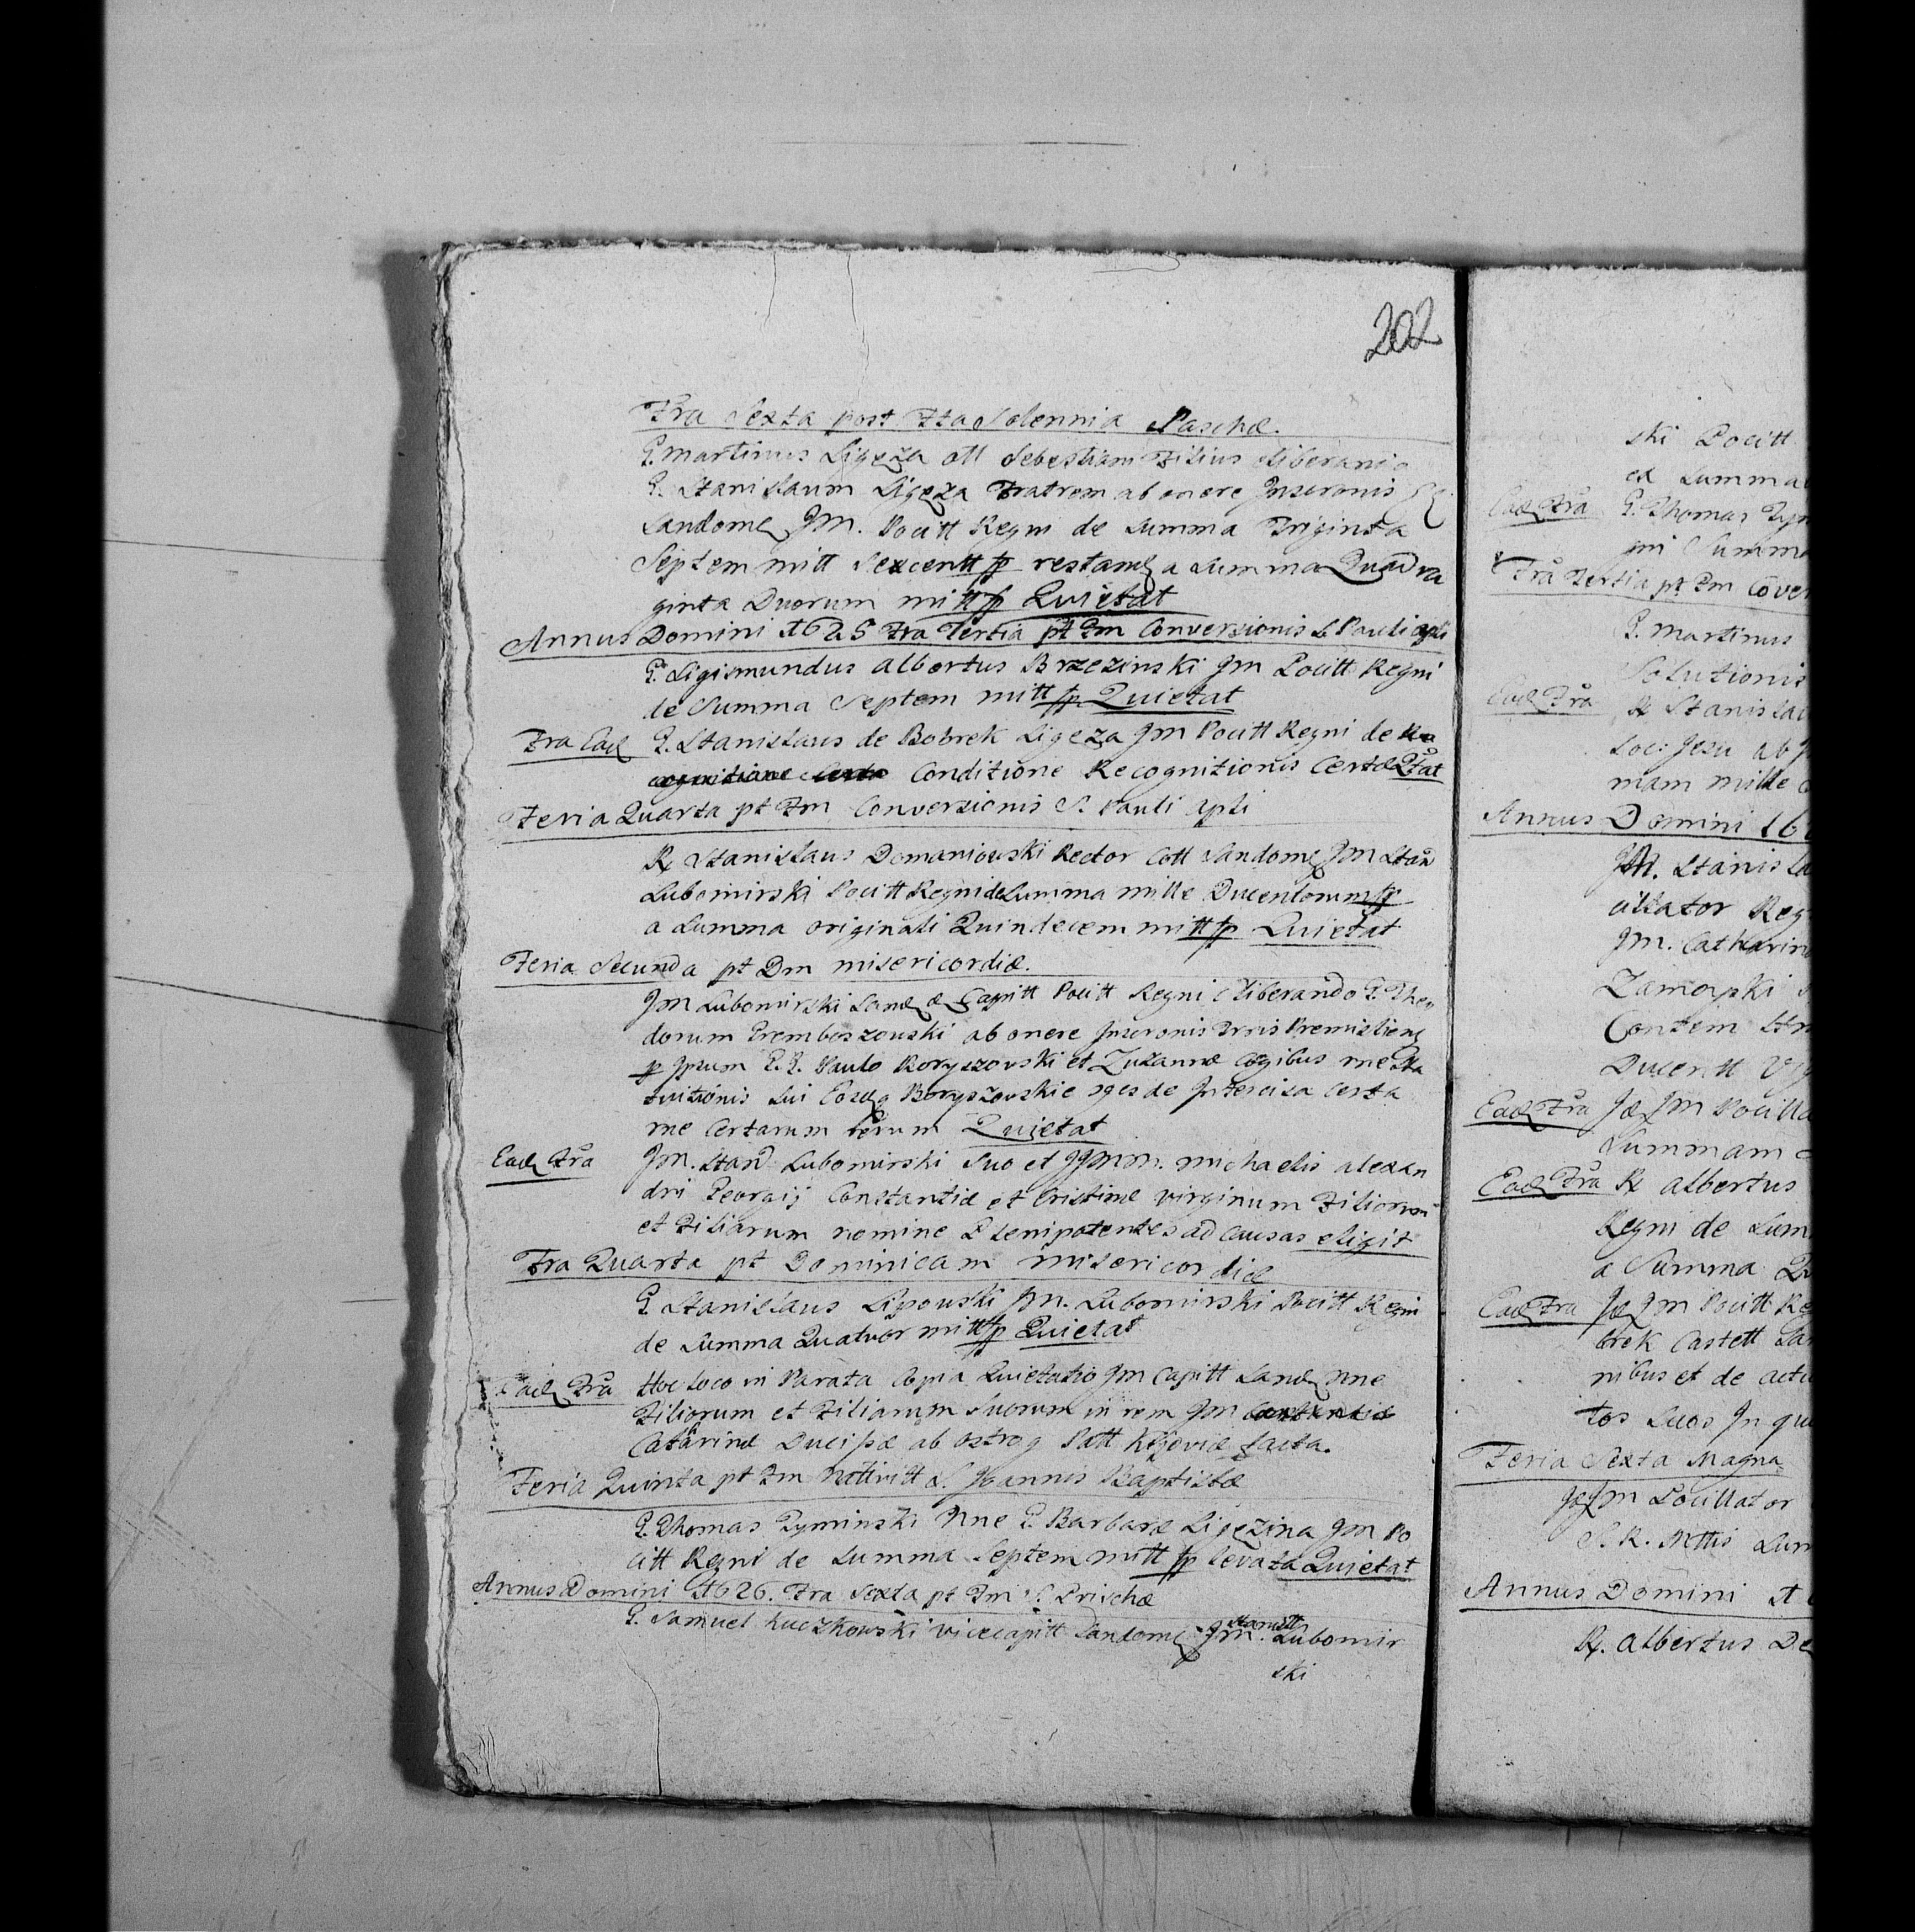 202
Fra Sexta post Fta Solennia Paschæ.
G. Martinus Ligęza oll Sebestiani Filius eliberando
G. Stanislaum Ligęza Fratrem ab onere Inscronis
Sandome Jm. Pocitt Regni de Summa Triginta
Septem mill Sexcentt fp restam a Summa Quadra
ginta Duorum mitt fp Quietat
Annus Domini 1625 Fra Tertia pt Fm Conversionis S. Pauli apli
G. Sigismundus Albertus Brzezinski Jm Pocitt Regni
de Summa Septem mitt fp Quietat
Fra Ead G. Stanislaus de Bobrek Ligęza Jm Pocitt Regni de Re
cognitione Certa Conditione Recognitionis Certæ Qtat
Feria Quarta pt Fm Conversionis S. Pauli Apli
R. Stanislaus Domaniowski Rector Coll Sandome Jm Stan
Lubomirski Pocitt Regni de Summa mille Ducentorum fp
a Summa originali Quindecem mitt fp Quietat
Feria Secunda pt Dm misericordiæ.
Jm Lubomirski Sand & Capitt Pocitt Regni eliberando G. Theo
dorum Tremboszowski ab onere Inscronis Trris Premisliens
p Ipsum G. G. Paulo Boryszowski et Zuzannæ Cogibus
tuitionis Sui Boryszowskie de Intercisa Certa
rne Certarum rerum Quietat
Ead Fra Jm. Stan Lubomirski Suo et JJmm. Michaelis Alexan
dri Georgij Constantiæ et Cristinæ virginum Filiorum
et Filiarum nomine Plenipotentes ad Causas eligit
Fra Quarta pt Dominicam misericordiæ
G. Stanislaus Lipowski Jm. Lubomirski Pocitt Regni
de Summa Quatuor mitt fp Quietat
Ead Fra Hoc loco in Parata Copia Quietatio Jm Capitt Sand Nne
Filiorum et Filiarum Suorum in rem Jm
Catarinæ Ducissæ ab Ostrog Patt Kijoviæ facta.
Feria Quinta pt Fm Nttivitt S. Joannis Baptistæ
G. Thomas Zyminski Nne G. Barbaræ Ligęzina Jm Po
citt Regni de Summa Septem mitt fp levata Quietat
Annus Domini 1626. Fra Sexta pt Fm S. Prischæ
G. Samuel Kuczkowski vicecapitt Sandome Jm. Lubomir
ski
ski Pocitt
ex Summa
Ead Fra G. Thomas Zym
gni Summa
Fra Tertia pt Fm Conver
G. Martinus
Solutionis
Ead Fra R. Stanislau
Soc: Jesu ab
mam mille
Annus Domini 16
Jm. Stanisla
cillator Reg
Jm. Catharin
Zamoyski
Ducentt
Ead Fra Jm Pocilla
Summam
Ead Fra R. Albertus
Regni de Sum
a Summa Qu
Ead Fra Jm Pocitt Re
brek Castell San
nibus et de actu
tos Suos In qu
Feria Sexta Magna
Jm Pocillator
S. R. Mttis Lu
Annus Domini 1
R. Albertus De